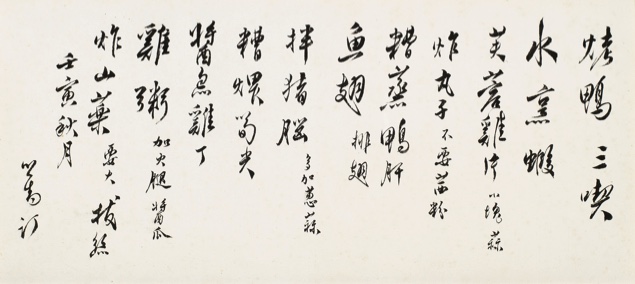 烤鴨 三喫
水烹蝦
芙蓉雞片 小塊蒜
炸丸子 不要芡粉
糟蒸鴨肝
魚翅 排翅
拌猪腦 多加蔥蒜
糟煨筍尖
醬急雞丁
雞粥 加火腿醬瓜
炸山藥 要大 拔絲
壬寅秋月
心畬訂